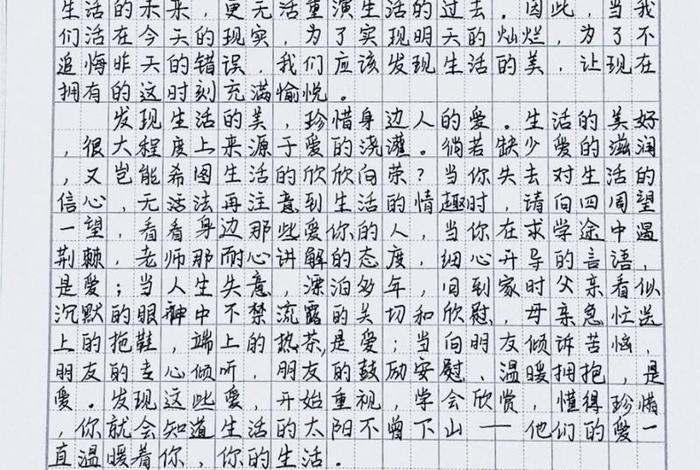 生活的未来，更无法重演生活的过去。因此，当我
们活在今天的现实，为了实现明天的灿烂，为了不
追悔昨天的错误，我们应该发现生活的美，让现在
拥有的这时刻充满愉悦。
发现生活的美，珍惜身边人的爱。生活的美好
，很大程度上来源于爱的浇灌。倘若缺少爱的滋润
，又岂能希图生活的欣欣向荣？当你失去对生活的
信心，无法再注意到生活的情趣时，请向四周望
一望，看看身边那些爱你的人，当你在求学途中遇
荆棘，老师那耐心讲解的态度，细心开导的言语，
是爱；当人生失意，漂泊多年，回到家时父亲看似
沉默的眼神中不禁流露的关切和欣慰，母亲急忙送
上的拖鞋，端上的热茶，是爱；当向朋友倾诉苦恼，
朋友的专心倾听，朋友的鼓励安慰、温暖拥抱，是
爱。发现这些爱，开始重视，学会欣赏，懂得珍惜
，你就会知道生活的太阳不曾下山——他们的爱一
直温暖着你，你的生活。